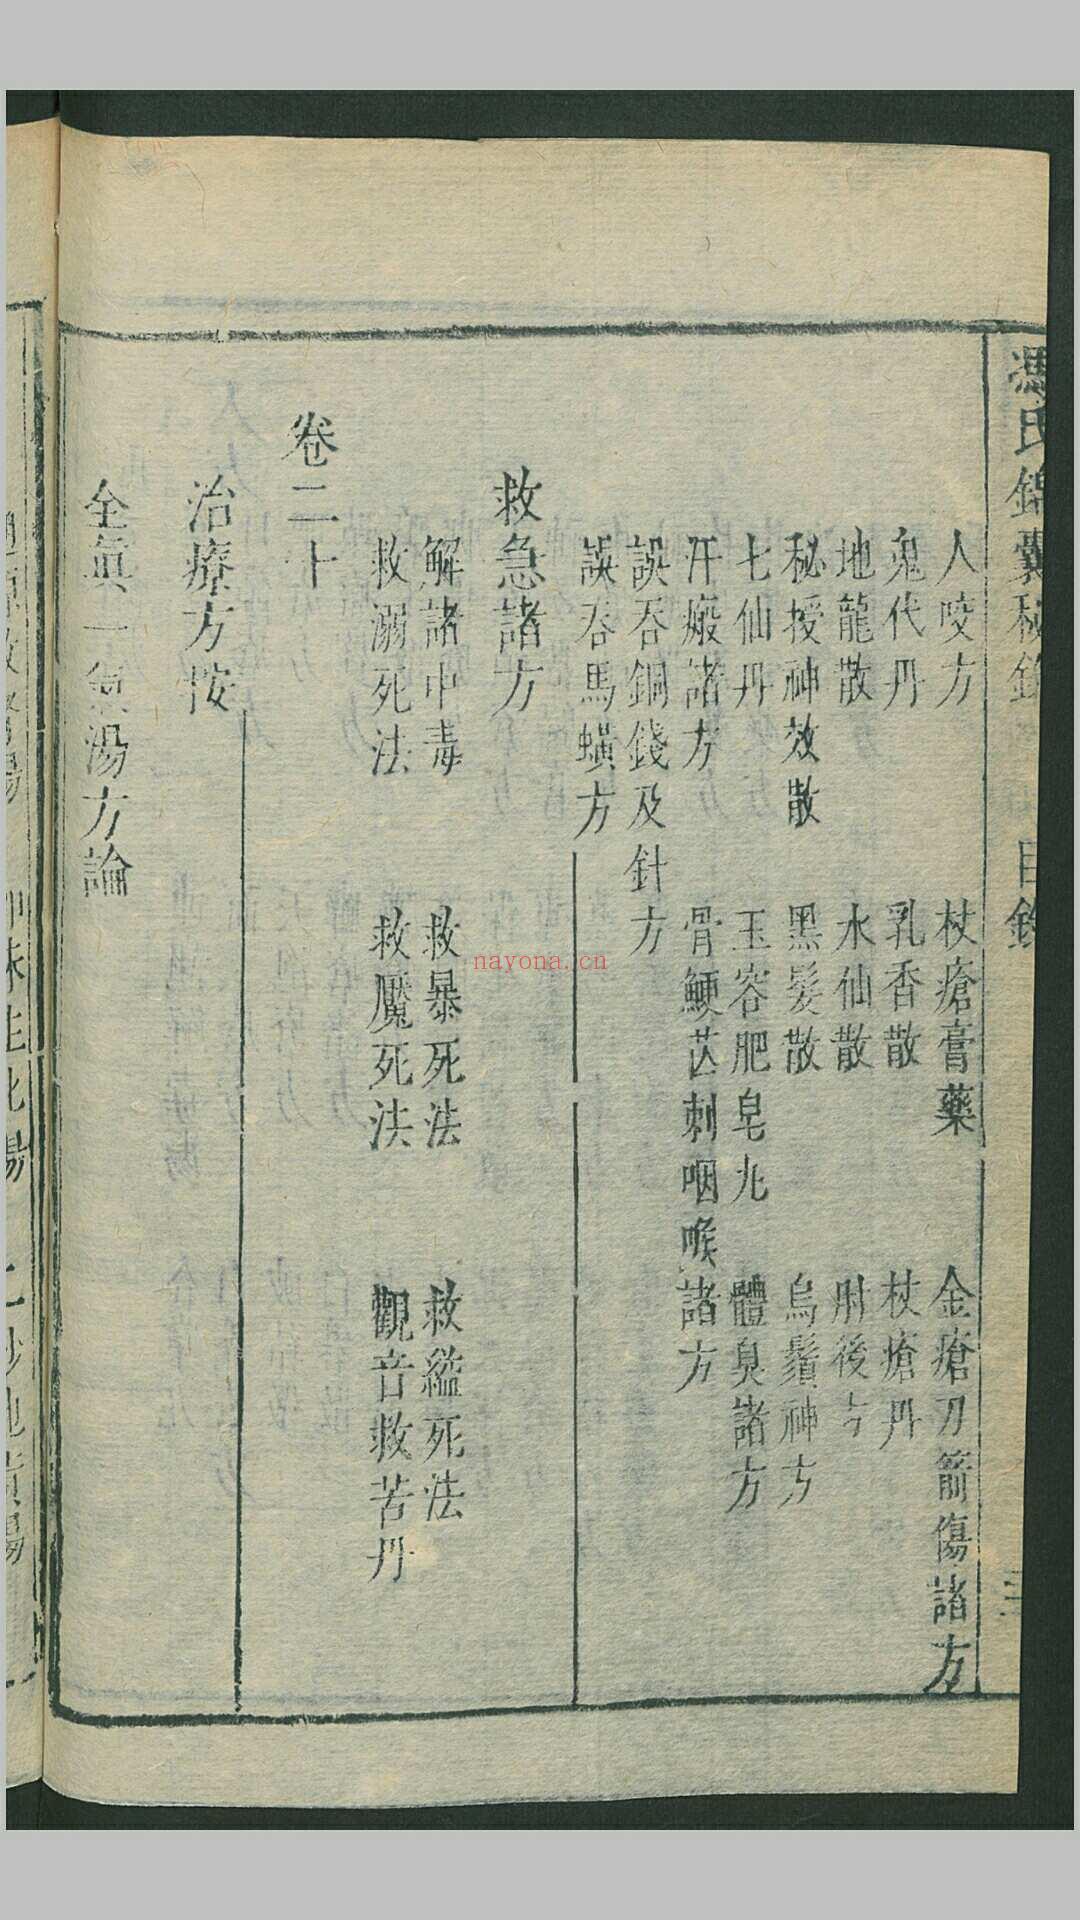 馮氏錦囊秘錄 目錄
人咬方 杖瘡膏藥 金瘡刀箭傷諸方
鬼代丹 乳香散 杖瘡丹
地龍散 水仙散 肘後方
秘授神效散 黑髮散 烏鬚神方
七仙丹 玉容肥皂丸 體臭諸方
汗瘢諸方 骨鯁芒刺咽喉諸方
誤吞銅錢及針方
誤吞馬蟥方
救急諸方
解諸中毒 救暴死法 救縊死法
救溺死法 救魘死法 觀音救苦丹
卷二十
治療方按
全真一氣湯方論
nayona.cn